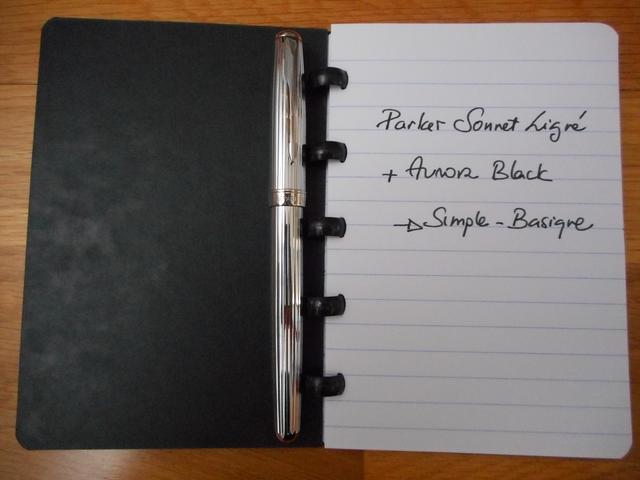 Parker Sonnet Ligné
+ Aurora Black
→ Simple - Basique